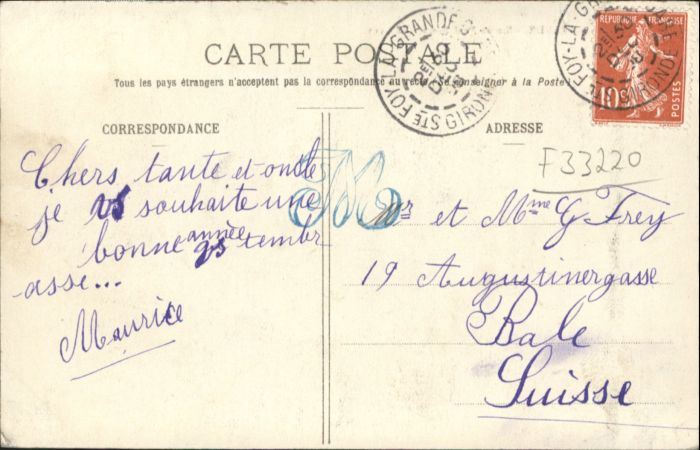 CARTE POSTALE
Tous les pays étrangers n'acceptent pas la correspondance au recto (Se renseigner à la Poste)
CORRESPONDANCE
ADRESSE
Chers tante et oncle
je vs souhaite une
bonne année vs tembr
asse...
Maurice
F33220
Mr et Mme G Frey
19 Augustinergasse
Bale
Suisse
STE FOY-LA-GRANDE GIRONDE
STE FOY-LA-GRANDE GIRONDE
RÉPUBLIQUE FRANÇAISE
10
POSTES